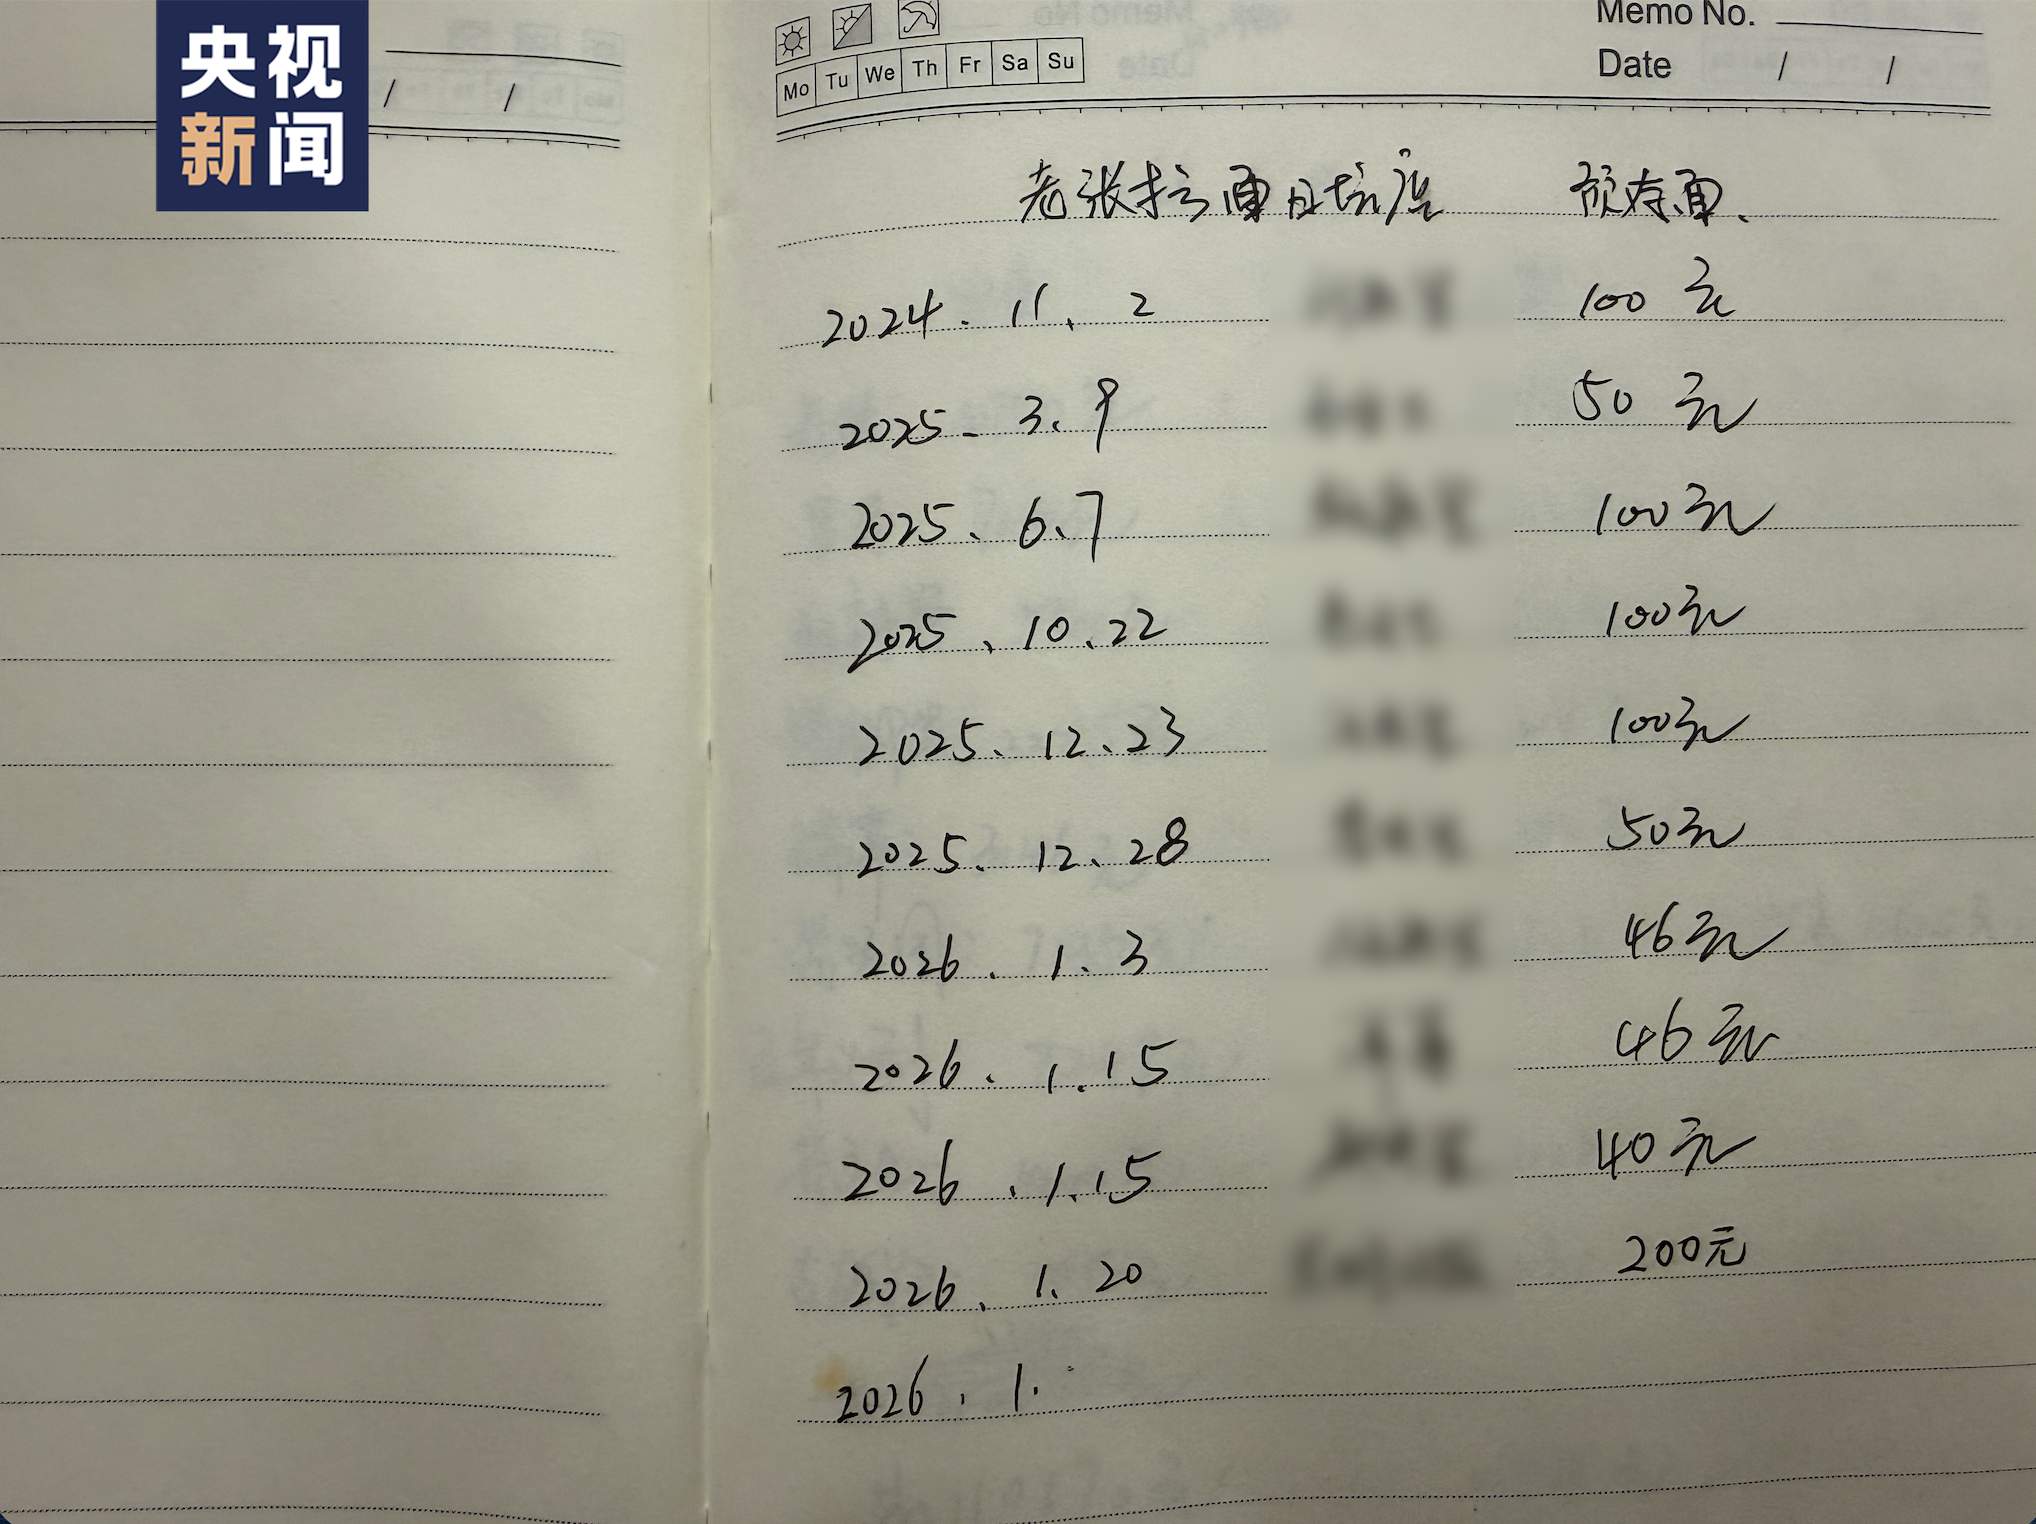 央视
新闻
/ /
Mo Tu We Th Fr Sa Su
Memo No.
Date / /
老张拉面日坛店 预存面、
2024. 11. 2 100元
2025. 3. 9 50元
2025. 6.7 100元
2025. 10.22 100元
2025. 12.23 100元
2025. 12.28 50元
2026. 1. 3 46元
2026. 1.15 46元
2026. 1.15 40元
2026. 1. 20 200元
2026. 1.